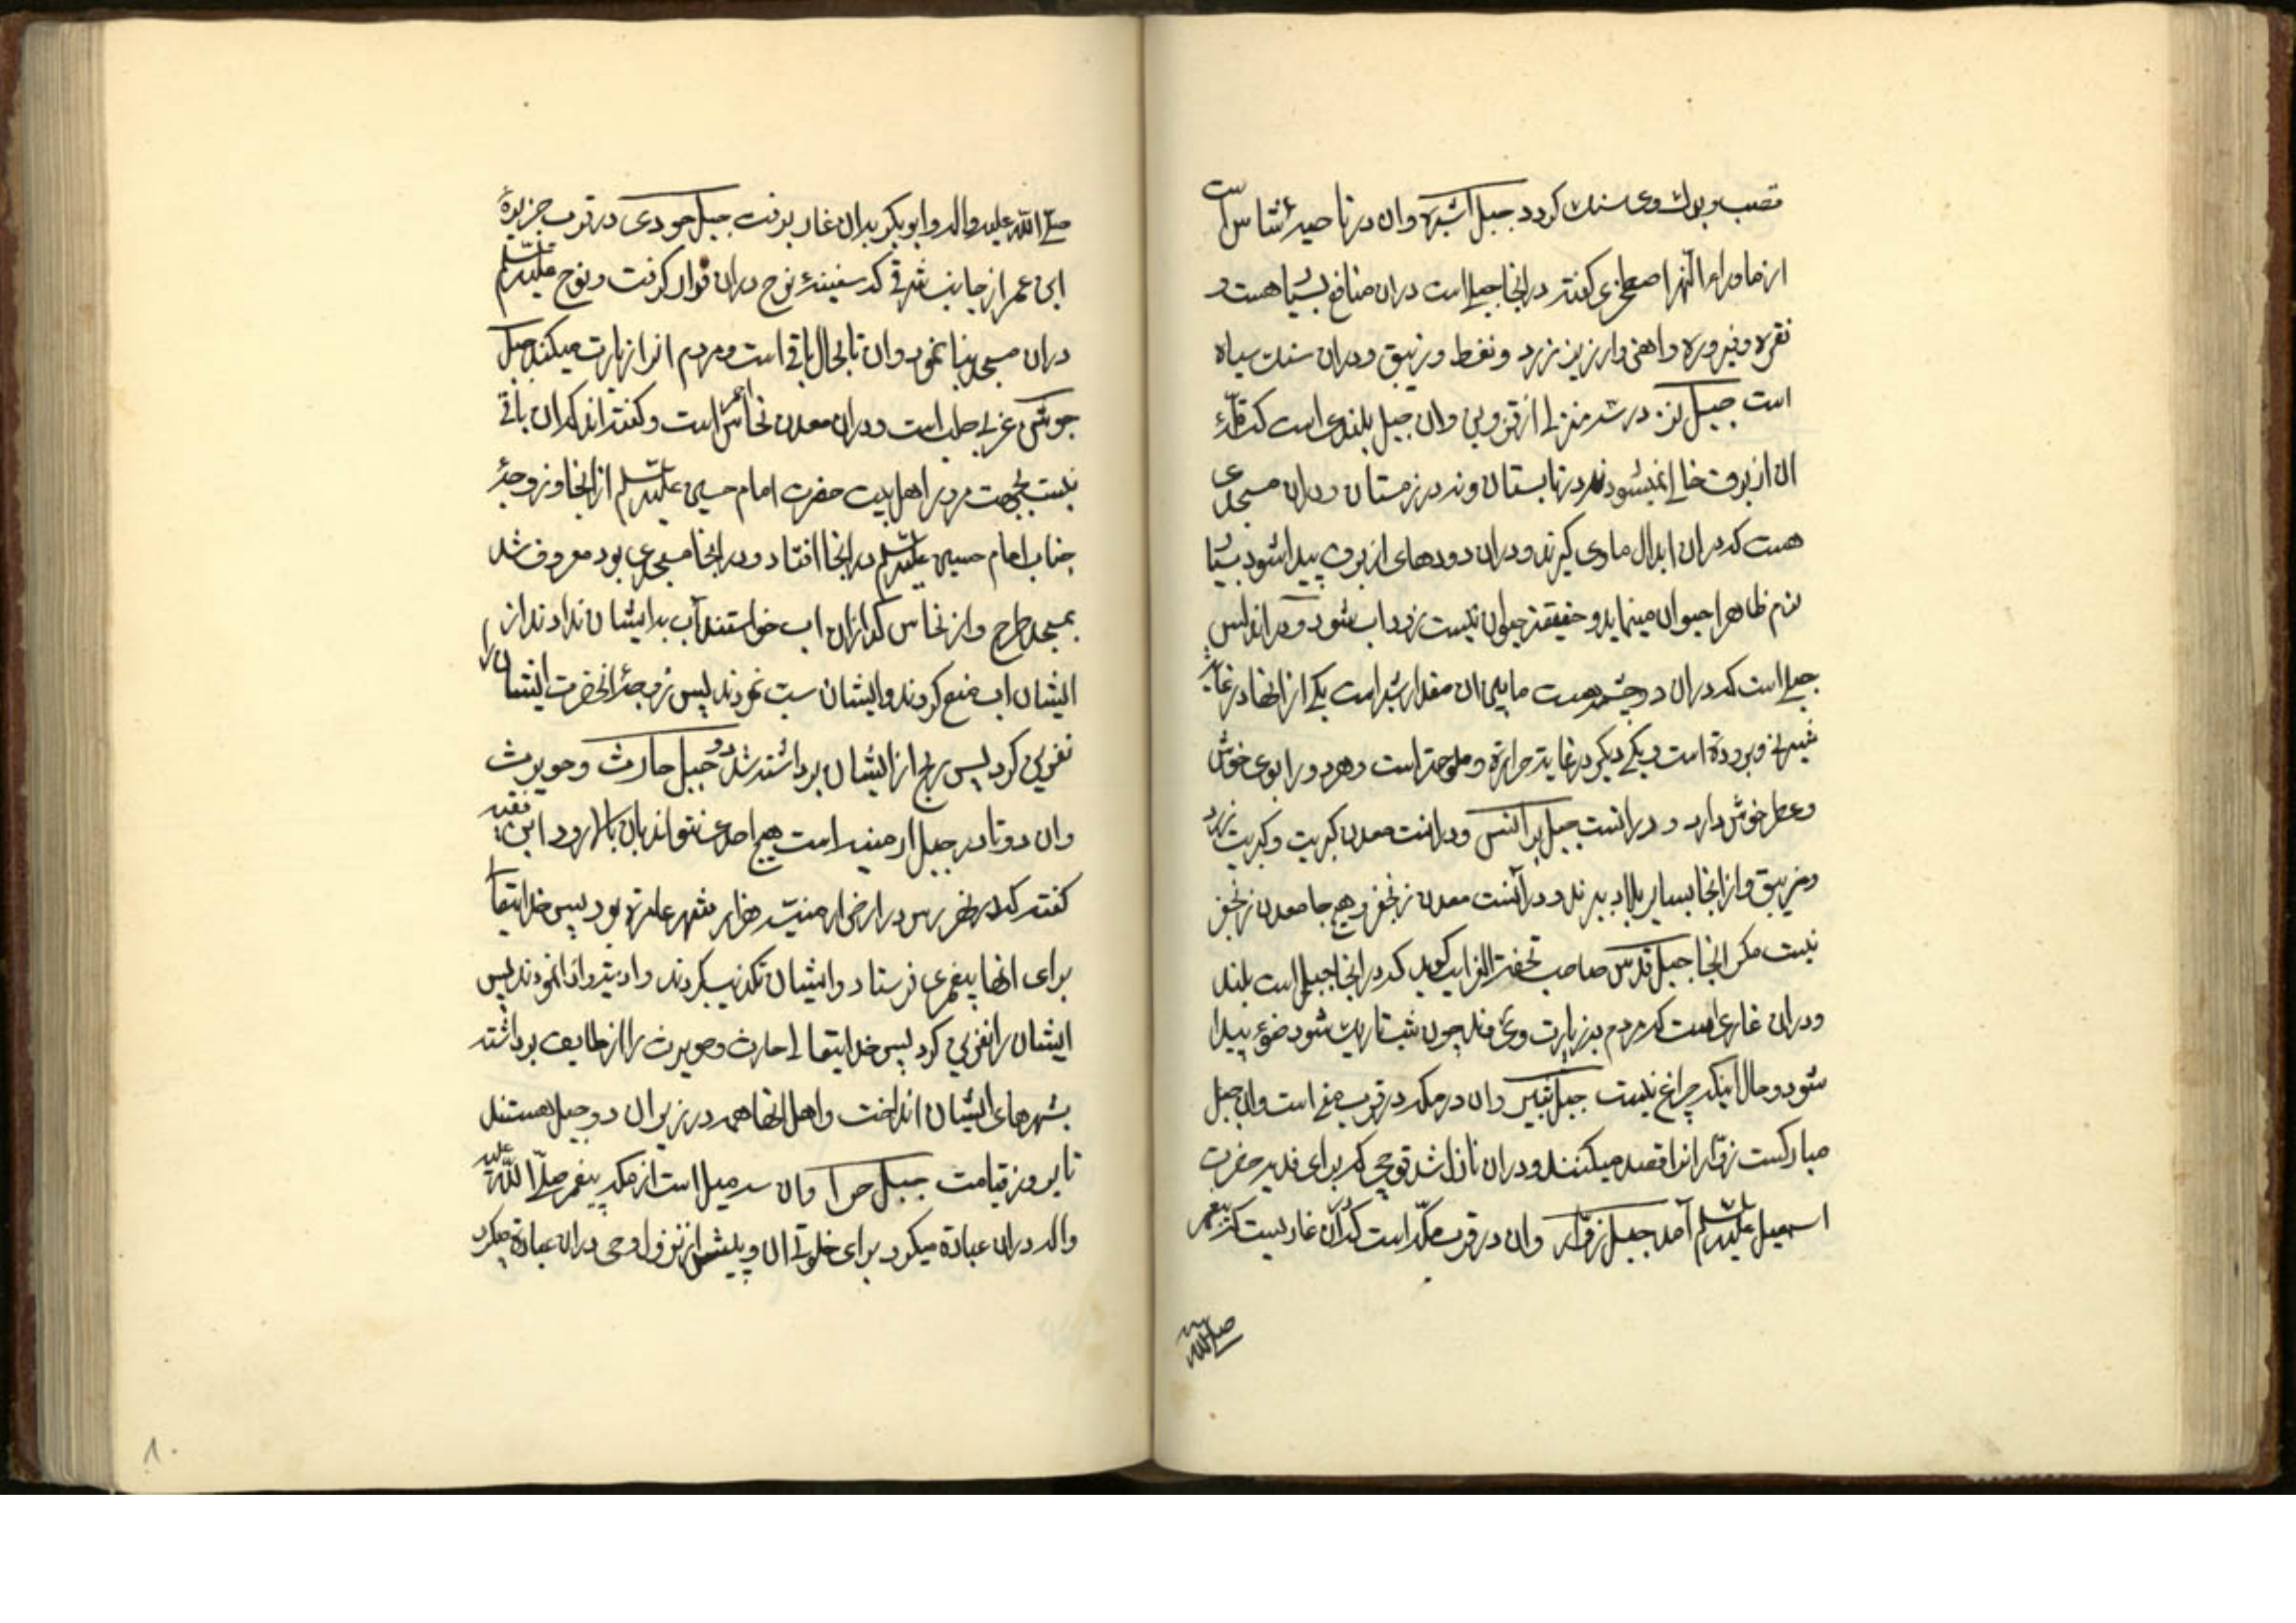 قصب و برك وی سنك كردد جبل اشبره وان در ناحیه شاس است
از ماوراء النهر اصطخری كفته در انجا جبلی است دران منافع بسیار هست و
نقره و فیروزه و اهن و ارزیز زرد و نفط و زیبق و دران سنك سیاه
است جبل در سه منزلی از قزوین وان جبل بلندی است كه قله
ان از برف خالی نمیشود نه در تابستان و نه در زمستان و دران مسجدی
هست كه دران ابدال ماوی كیرند و دران دودهای از برف پیدا شود بسیار
نرم ظاهرا حیوان مینماید و حقیقة حیوان نیست زود اب شود و در اندلس
جبلی است كه دران دو چشمه هست مابین ان مقدار شبر است یكی از انها در غایة
شیرینی و برودة است و یكی دیكر در غایة حرارة و ملوحة است و هر دو را بوی خوش
و عطر خوش دارد و در انست جبل برانس و در انست معدن كبریت و كبریت زرد
و زیبق و از انجا بسایر بلاد برند و در آنست معدن زنجفر و هیچ جا معدن زنجفر
نیست مكر انجا جبل قدس صاحب تحفة الغرایب كوید كه در انجا جبلی است بلند
و دران غاری است كه مردم بزیارت وی روند چون شب تاریك شود ضوء پیدا
شود و حال اینكه چراغ نیست جبل ثبیر وان در مكه در قرب منی است وان جبل
مباركست زوار انرا قصد میكنند و دران نازل شد قوچی كه برای فدیه حضرت
اسمعیل علیه السلم آمد جبل وان در قرب مكه است كه دران غاریست كه پیغمبر
صلی الله
صلی الله علیه واله و ابوبكر بدان غار برفت جبل جودی در قرب جزیرۀ
ابن عمر از جانب شرقی كه سفینۀ نوح دران قرار كرفت و نوح علیه السلم
دران مسجد بنا نمود وان تا بحال باقی است و مردم انرا زیارت میكنند جبل
جوشن غربی حلب است و دران معدن نحاس احمر است و كفته اند كه ان باقی
نیست بجهت مرور اهل بیت حضرت امام حسین علیه السلم از انجا و زوجۀ
جناب امام حسین علیه السلم در انجا افتاد و در انجا مسجدی بود معروف شد
بمسجد طرح و از نحاس كداران اب خواستند آب بدایشان ندادند از
ایشان اب منع كردند و ایشان سبّ نمودند پس زوجۀ انحضرت ایشان را
نفرین كرد پس ربح از ایشان برداشته شد و جبل حارث و حویرث
وان دو تا در جبل ارمنیه است هیچ احدی نتواند بان بالا رود ابن فقیه
كفته كه در نهر رس در ارض ارمنیّه هزار شهر عامره بود پس خدایتعالی
برای انها پیغمبری فرستاد و ایشان تكذیب كردند و اذیت نمودند پس
ایشان را نفرین كرد پس خدایتعالی حارث و حویرث را از طایف برداشته
بشهرهای ایشان انداخت و اهل انها همه در زیر ان دو جبل هستند
تا بروز قیامت جبل حرا وان سه میل است از مكه پیغمبر صلّی اللّه علیه
واله دران عبادة میكرد برای خلوتی ان و پیش از نزول وحی دران عبادة میكرد
۱۰